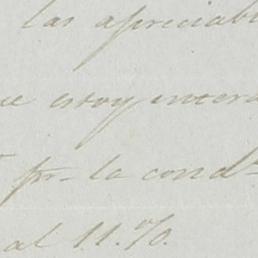 las apreciabl
ue estoy entera
pr. la cond.
al 11.%.